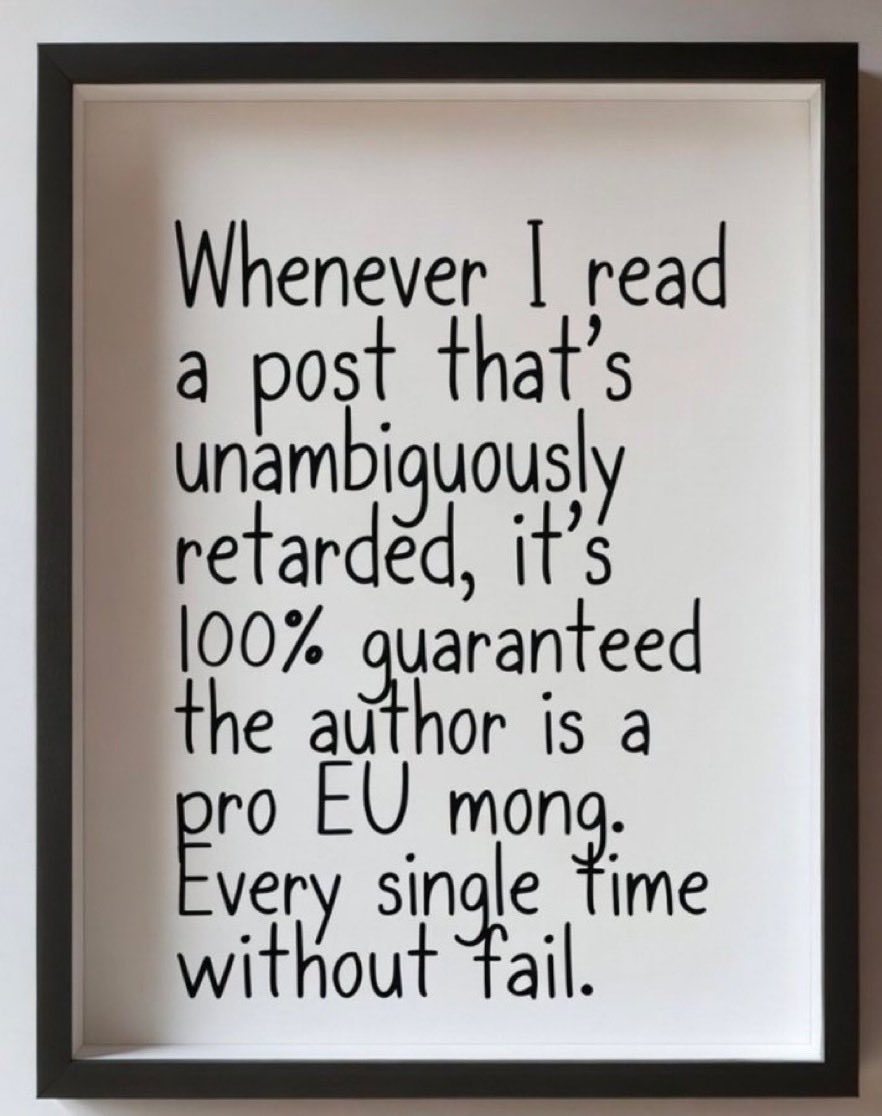 Whenever I read
a post that's
unambiguously
retarded, it's
100% guaranteed
the author is a
pro EU mong.
Every single time
without fail.